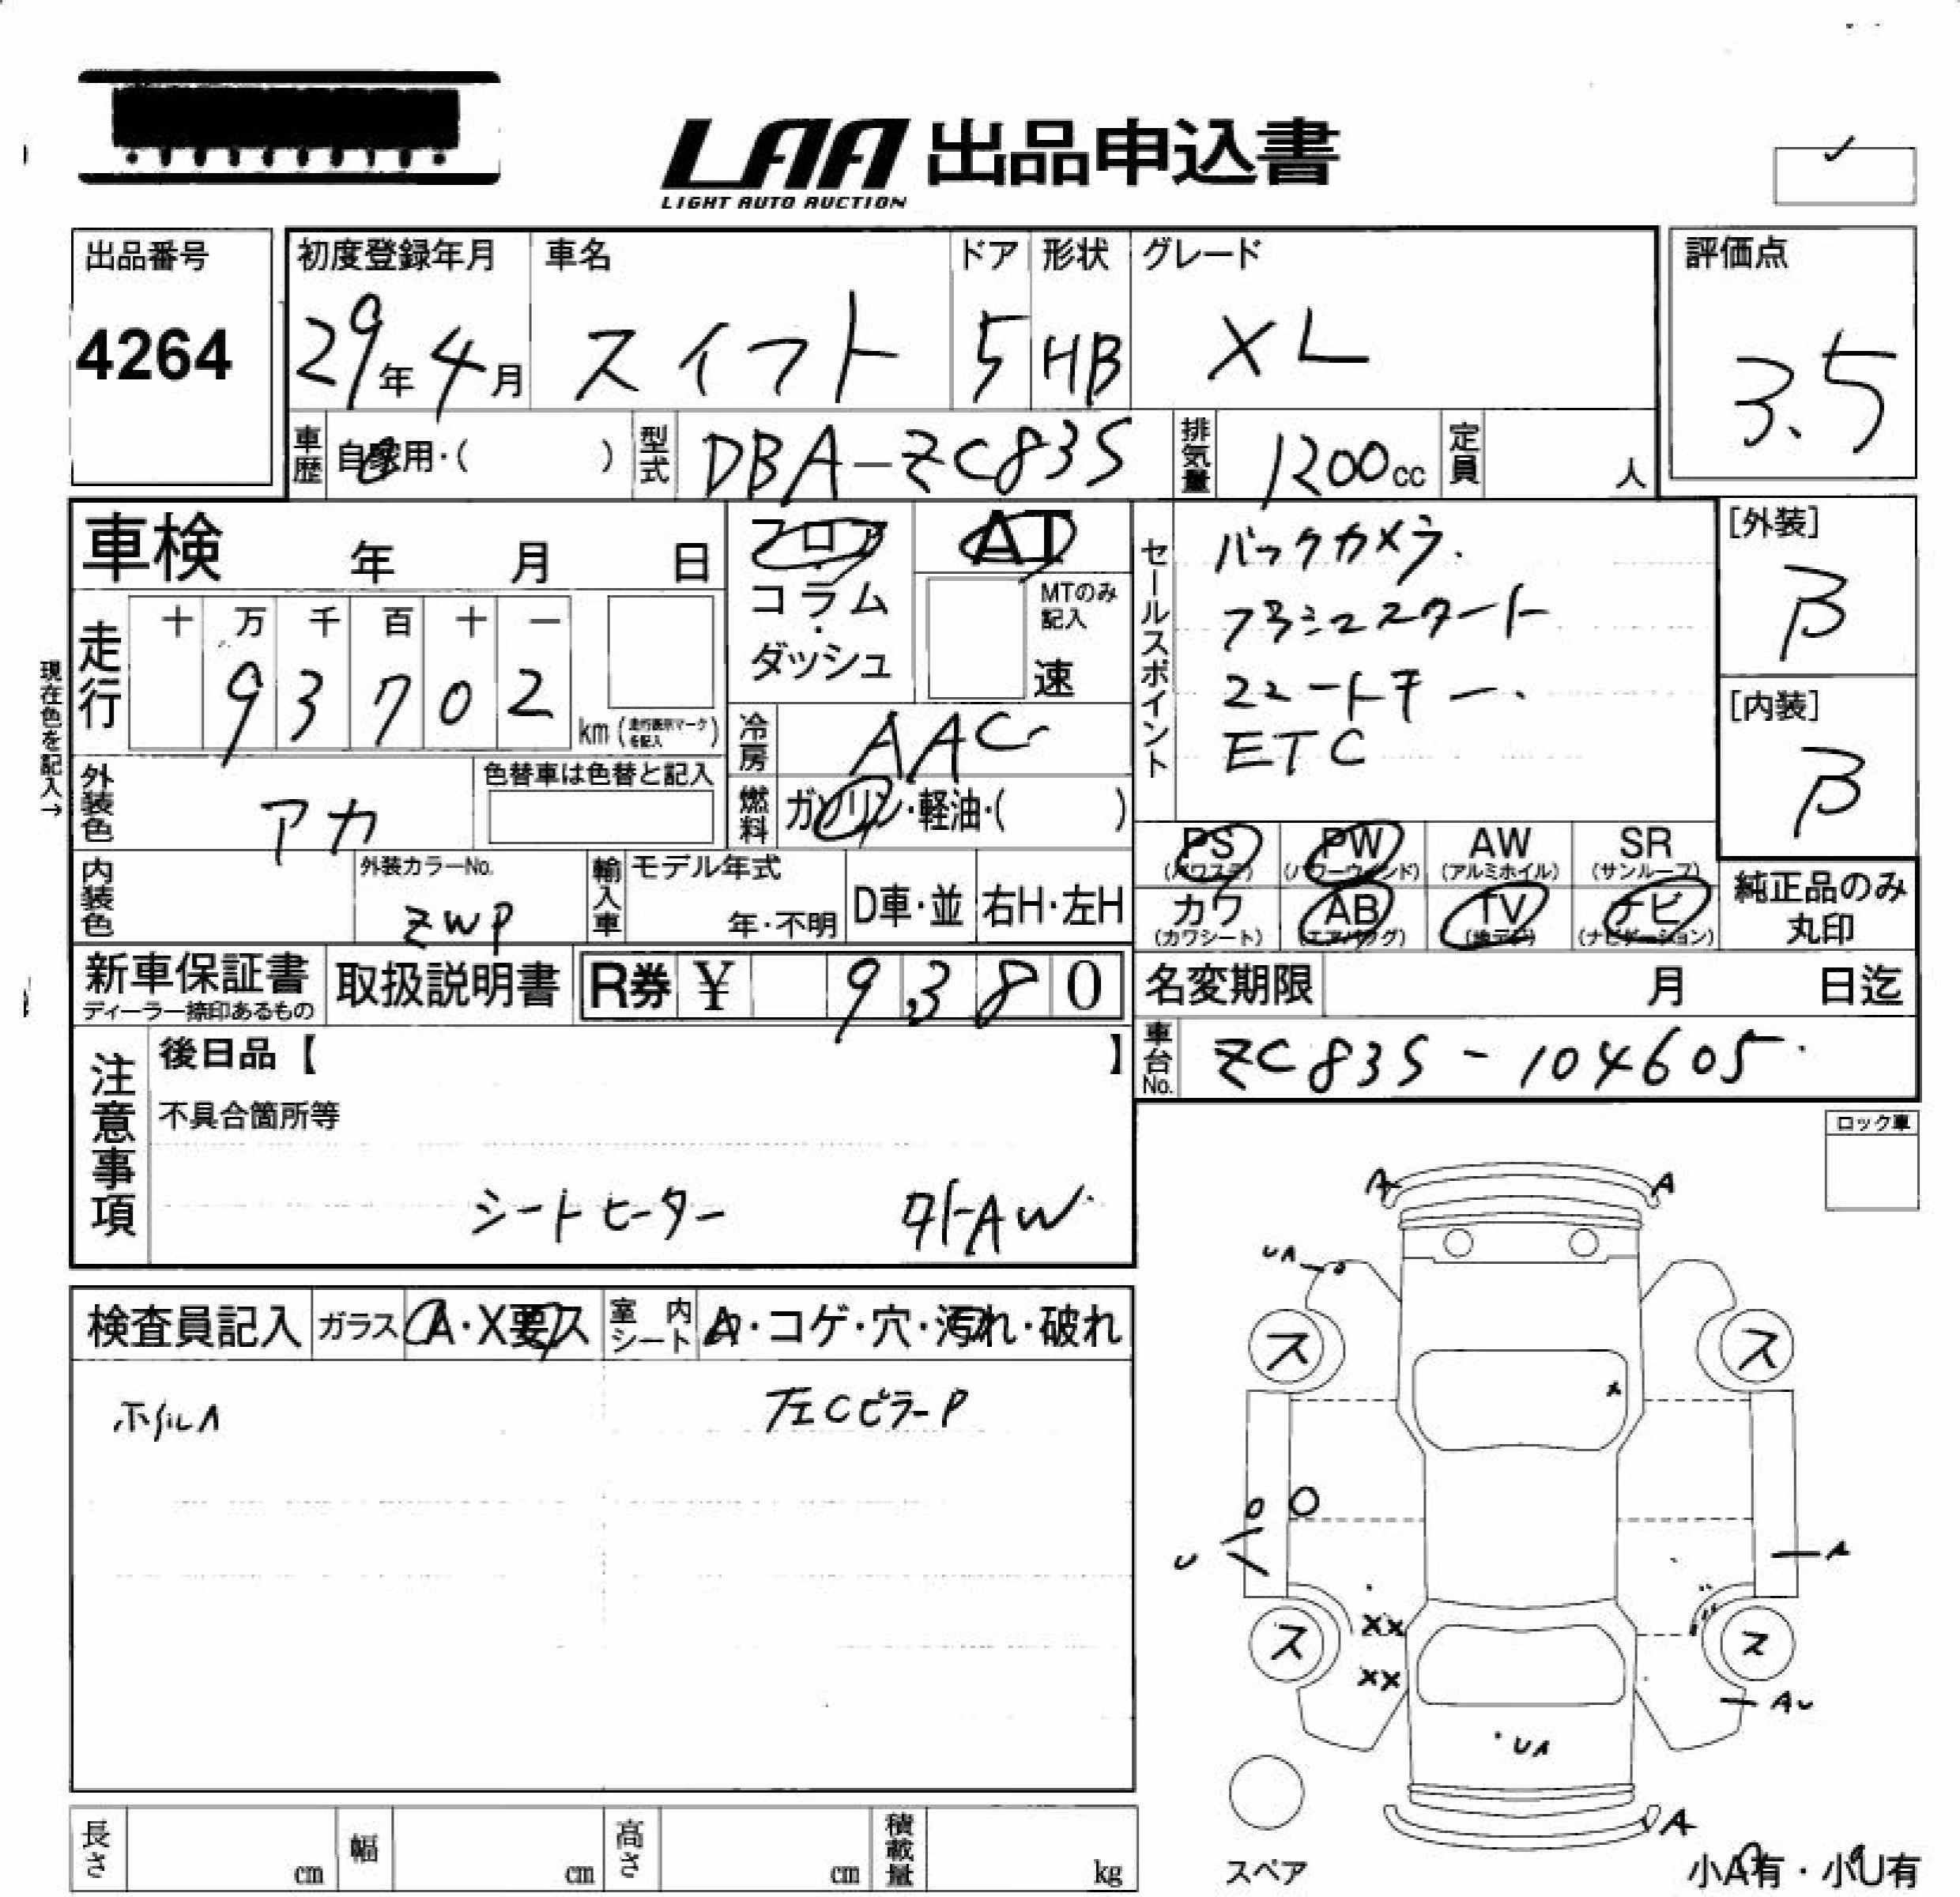 LAA 出品申込書
LIGHT AUTO AUCTION
出品番号
4264
初度登録年月
29年4月
車名
スイフト
ドア
5
形状
HB
グレード
XL
評価点
3.5
車歴
自家用・( )
型式
DBA-ZC83S
排気量
1200cc
定員
人
車検 年 月 日
フロア
コラム
・
ダッシュ
AT
MTのみ
記入
速
セールスポイント
バックカメラ.
プッシュスタート
スマートキー.
ETC
[外装]
B
[内装]
B
現在色を記入→
走行
十 万 千 百 十 一
9 3 7 0 2
km (走行表示マークを記入)
冷房
AAC
外装色
アカ
色替車は色替と記入
燃料
ガソリン・軽油・( )
PS PW AW SR
(パワステ) (パワーウィンド) (アルミホイル) (サンルーフ)
カワ AB TV ナビ
(カワシート) (エアバッグ) (地デジ) (ナビゲーション)
純正品のみ
丸印
内装色
外装カラーNo.
ZWP
輸入車
モデル年式
年・不明
D車・並
右H・左H
新車保証書
ディーラー捺印あるもの
取扱説明書
R券 ¥ 9,380
名変期限 月 日迄
車台No.
ZC83S-104605
注意事項
後日品【 】
不具合箇所等
シートヒーター 外AW
ロック車
検査員記入
ガラス
A・X要ス
室内
シート
A・コゲ・穴・汚れ・破れ
左CピラーP
A A
UA
ス ス
U
A
XX
ス ス
XX
AU
UA
A
スペア
小A有・小U有
長さ cm
幅 cm
高さ cm
積載量 kg